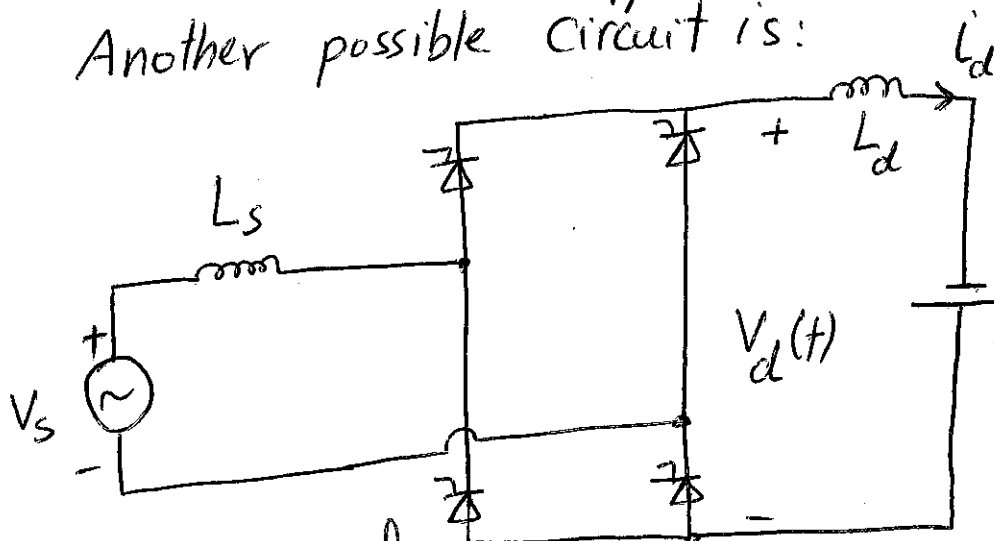 Another possible circuit is:
i_d
+
L_d
L_s
V_d(t)
+
V_s
-
-